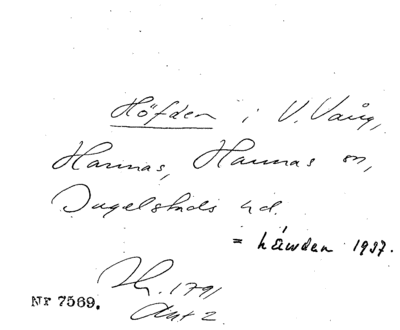 Höfden i V. Vång,
Hannas, Hannas sn,
Ingelstads hd.
= håwden 1937.
Nr 7569. 1791
Akt 2